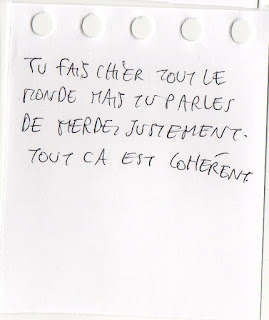 TU FAIS CHIER TOUT LE
MONDE MAIS TU PARLES
DE MERDE, JUSTEMENT.
TOUT CA EST COHÉRENT.